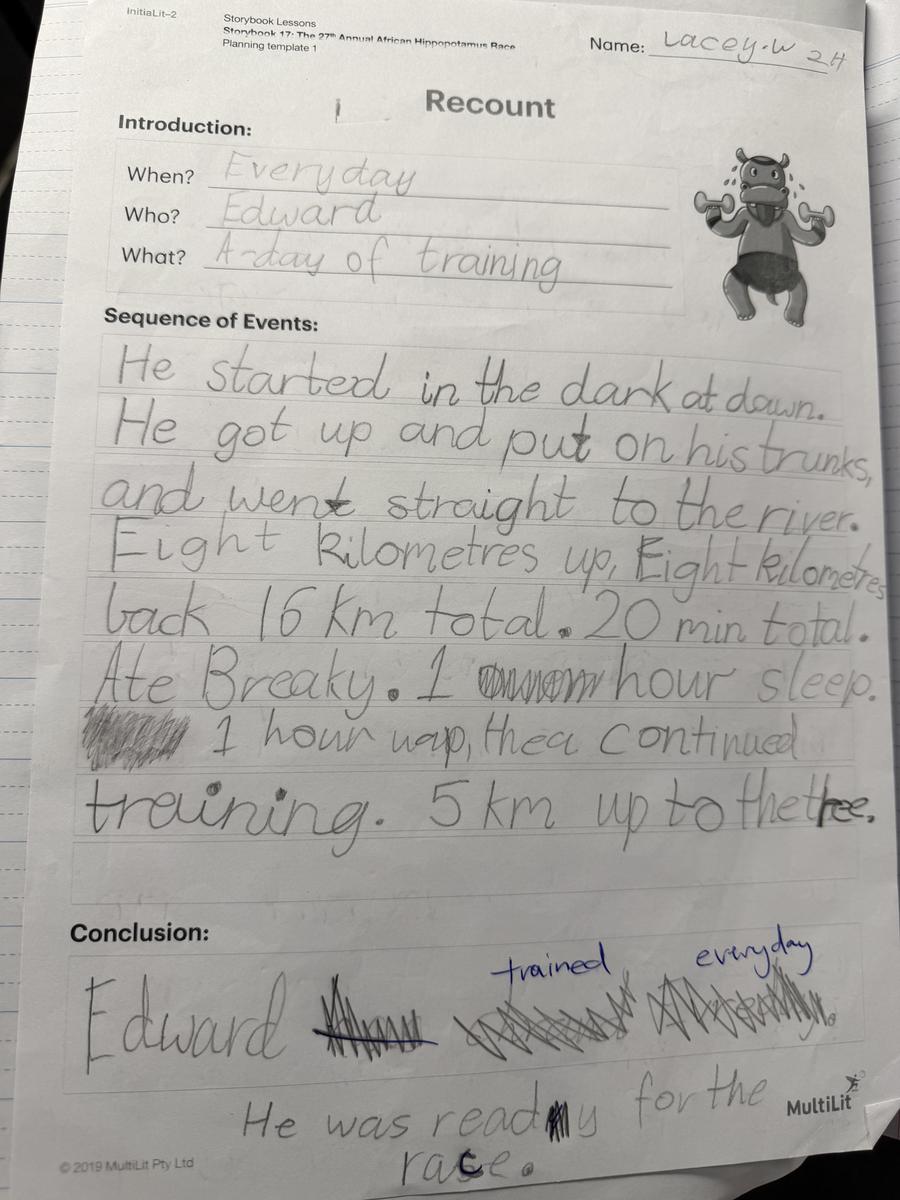 InitiaLit–2
Storybook Lessons
Storybook 17: The 27th Annual African Hippopotamus Race
Planning template 1
Name: Lacey.W 2H
Recount
Introduction:
When? Everyday
Who? Edward
What? A-day of training
Sequence of Events:
He started in the dark at dawn.
He got up and put on his trunks,
and went straight to the river.
Eight kilometres up, Eight kilometres
back 16 km total. 20 min total.
Ate Breaky. 1 hour sleep.
1 hour nap, then continued
training. 5 km up to the tree.
Conclusion:
trained everyday
Edward
He was ready for the
race.
MultiLit
© 2019 MultiLit Pty Ltd